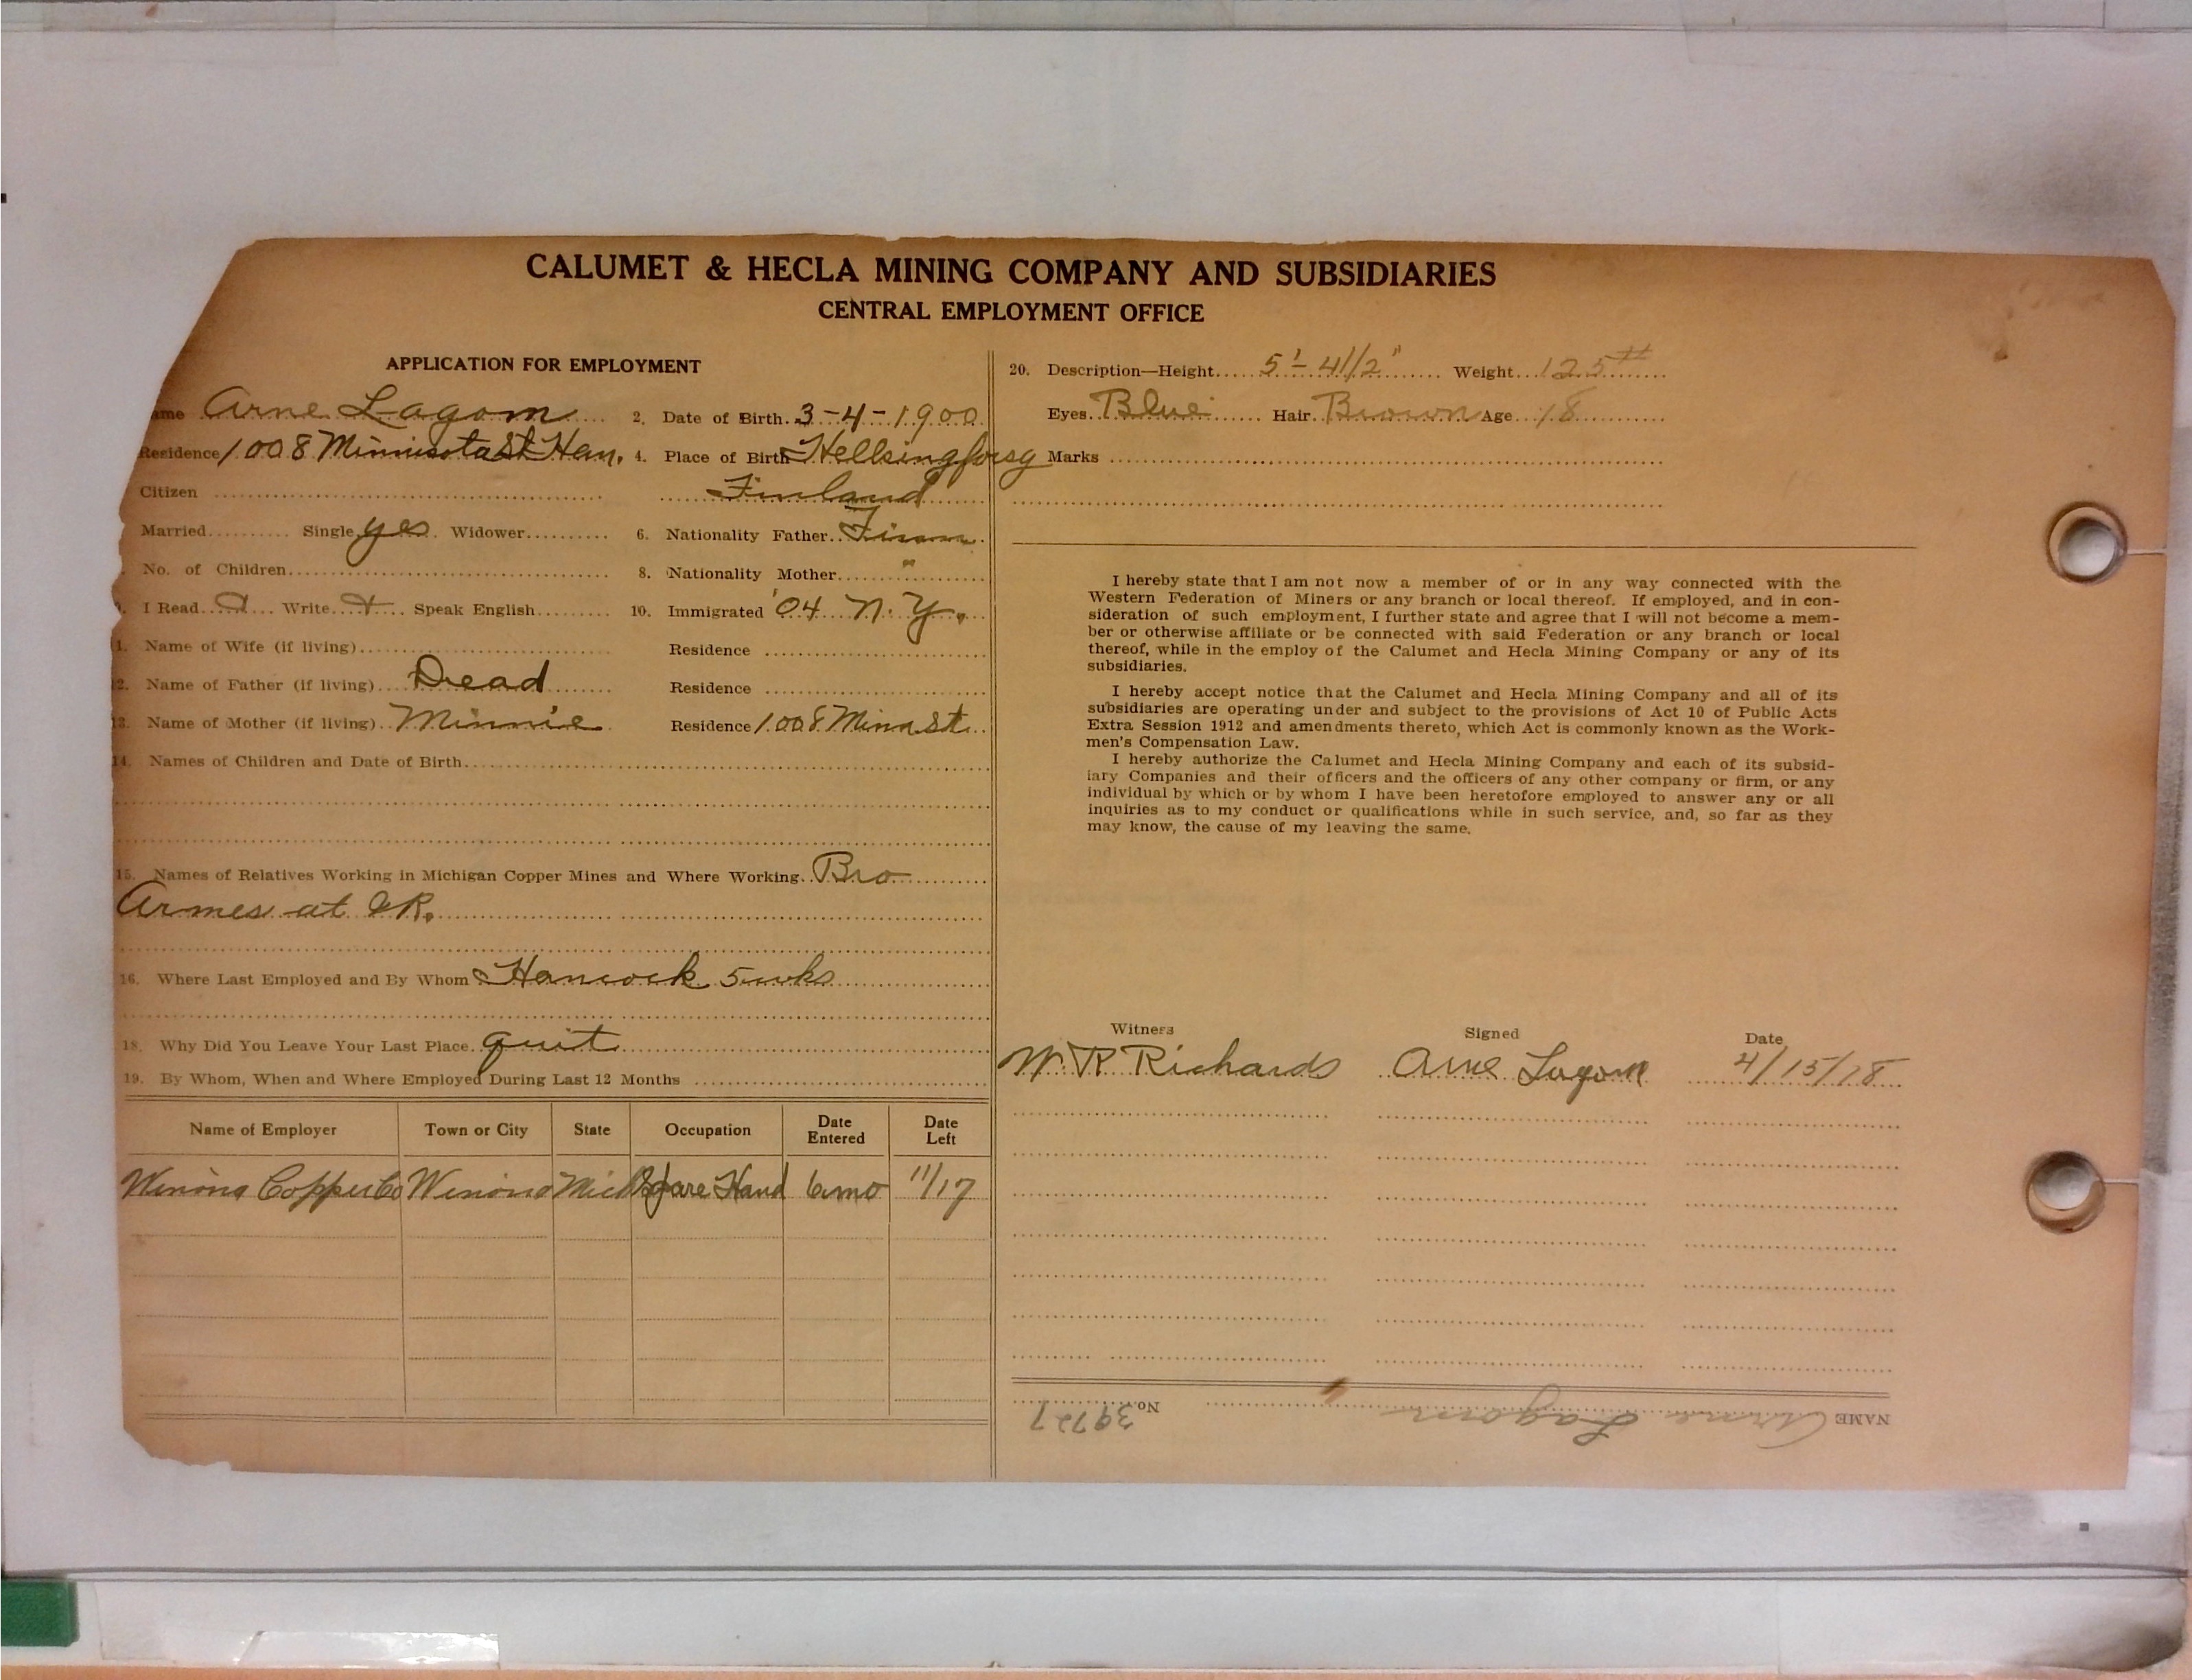 CALUMET & HECLA MINING COMPANY AND SUBSIDIARIES
CENTRAL EMPLOYMENT OFFICE
APPLICATION FOR EMPLOYMENT
ame Arne Lagom 2. Date of Birth 3-4-1900
Residence 1008 Minnisota St Han. 4. Place of Birth Hellsingforsg
Citizen Finland
Married Single yes Widower 6. Nationality Father Finn
No. of Children 8. Nationality Mother "
I Read Write Speak English 10. Immigrated '04 N.Y.
1. Name of Wife (if living) Residence
12. Name of Father (if living) Dead Residence
13. Name of Mother (if living) Minnie Residence 1008 Minn St.
14. Names of Children and Date of Birth
15. Names of Relatives Working in Michigan Copper Mines and Where Working Bro
Armes at
16. Where Last Employed and By Whom Hancock 5 wks
18. Why Did You Leave Your Last Place quit
19. By Whom, When and Where Employed During Last 12 Months
Name of Employer Town or City State Occupation Date Entered Date Left
Winona Copper Co Winona Mich Spare Hand 6 mo 11/17
20. Description—Height 5'-4 1/2" Weight 125#
Eyes Blue Hair Brown Age 18
Marks
I hereby state that I am not now a member of or in any way connected with the
Western Federation of Miners or any branch or local thereof. If employed, and in con-
sideration of such employment, I further state and agree that I will not become a mem-
ber or otherwise affiliate or be connected with said Federation or any branch or local
thereof, while in the employ of the Calumet and Hecla Mining Company or any of its
subsidiaries.
I hereby accept notice that the Calumet and Hecla Mining Company and all of its
subsidiaries are operating under and subject to the provisions of Act 10 of Public Acts
Extra Session 1912 and amendments thereto, which Act is commonly known as the Work-
men's Compensation Law.
I hereby authorize the Calumet and Hecla Mining Company and each of its subsid-
iary Companies and their officers and the officers of any other company or firm, or any
individual by which or by whom I have been heretofore employed to answer any or all
inquiries as to my conduct or qualifications while in such service, and, so far as they
may know, the cause of my leaving the same.
Witness Signed Date
W. R. Richards Arne Lagom 4/15/18
NAME Arne Lagom No. 39727